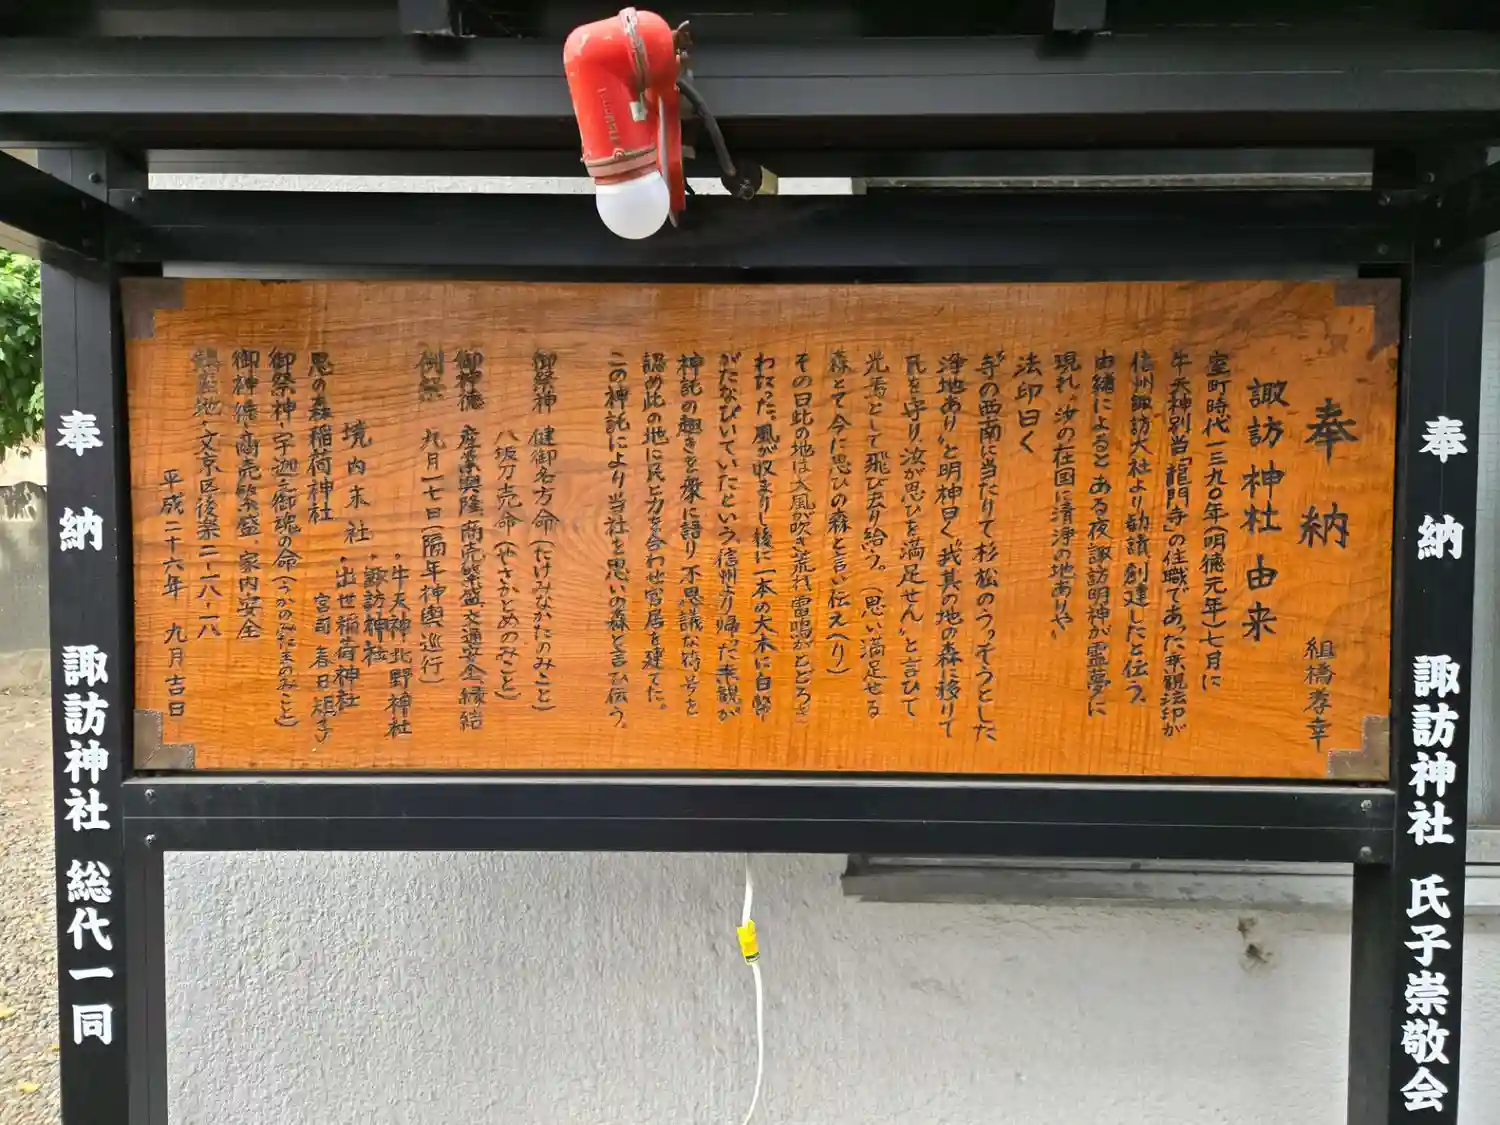 奉納 諏訪神社 氏子崇敬会
奉納
組橋孝幸
諏訪神社由来
室町時代一三九〇年(明徳元年)七月に
牛天神別当“龍門寺の住職であった乗観法印が
信州諏訪大社より勧請、創建したと伝う。
由緒によると、ある夜諏訪明神が霊夢に
現れ“汝の在国に清浄の地ありや”
法印曰く
“寺の西南に当たりて杉松のうっそうとした
浄地あり”と明神曰く“我其の地の森に移りて
氏を守り、汝が思ひを満足せん”と言ひて
光焉として飛び去り給う。(思い満足せる
森とて今に思ひの森と言い伝え〈り)
その日此の地は大風吹き荒れ雷鳴がとどろき
わたった、風が収まりし後に一本の大木に白幣
がたなびいていたという、信州より帰った乗観が
神託の趣きを衆に語り、不思議な符号を
認め此の地に民と力を合わせ宮居を建てた。
この神託により当社を思いの森と言い伝う。
御祭神 健御名方命(たけみなかたのみこと)
八坂刀売命(やさかとめのみこと)
御神徳 産業興隆、商売繁盛、交通安全、縁結
例祭 九月一七日(隔年神輿巡行)
・牛天神北野神社
境内末社 ・諏訪神社
・出世稲荷神社
思の森稲荷神社 宮司 春日
御祭神・宇迦之御魂の命(うかのみたまのみこと)
御神徳・商売繁盛、家内安全
鎮座地・文京区後楽二-一八-一八
平成二十六年 九月吉日
奉納 諏訪神社 総代一同